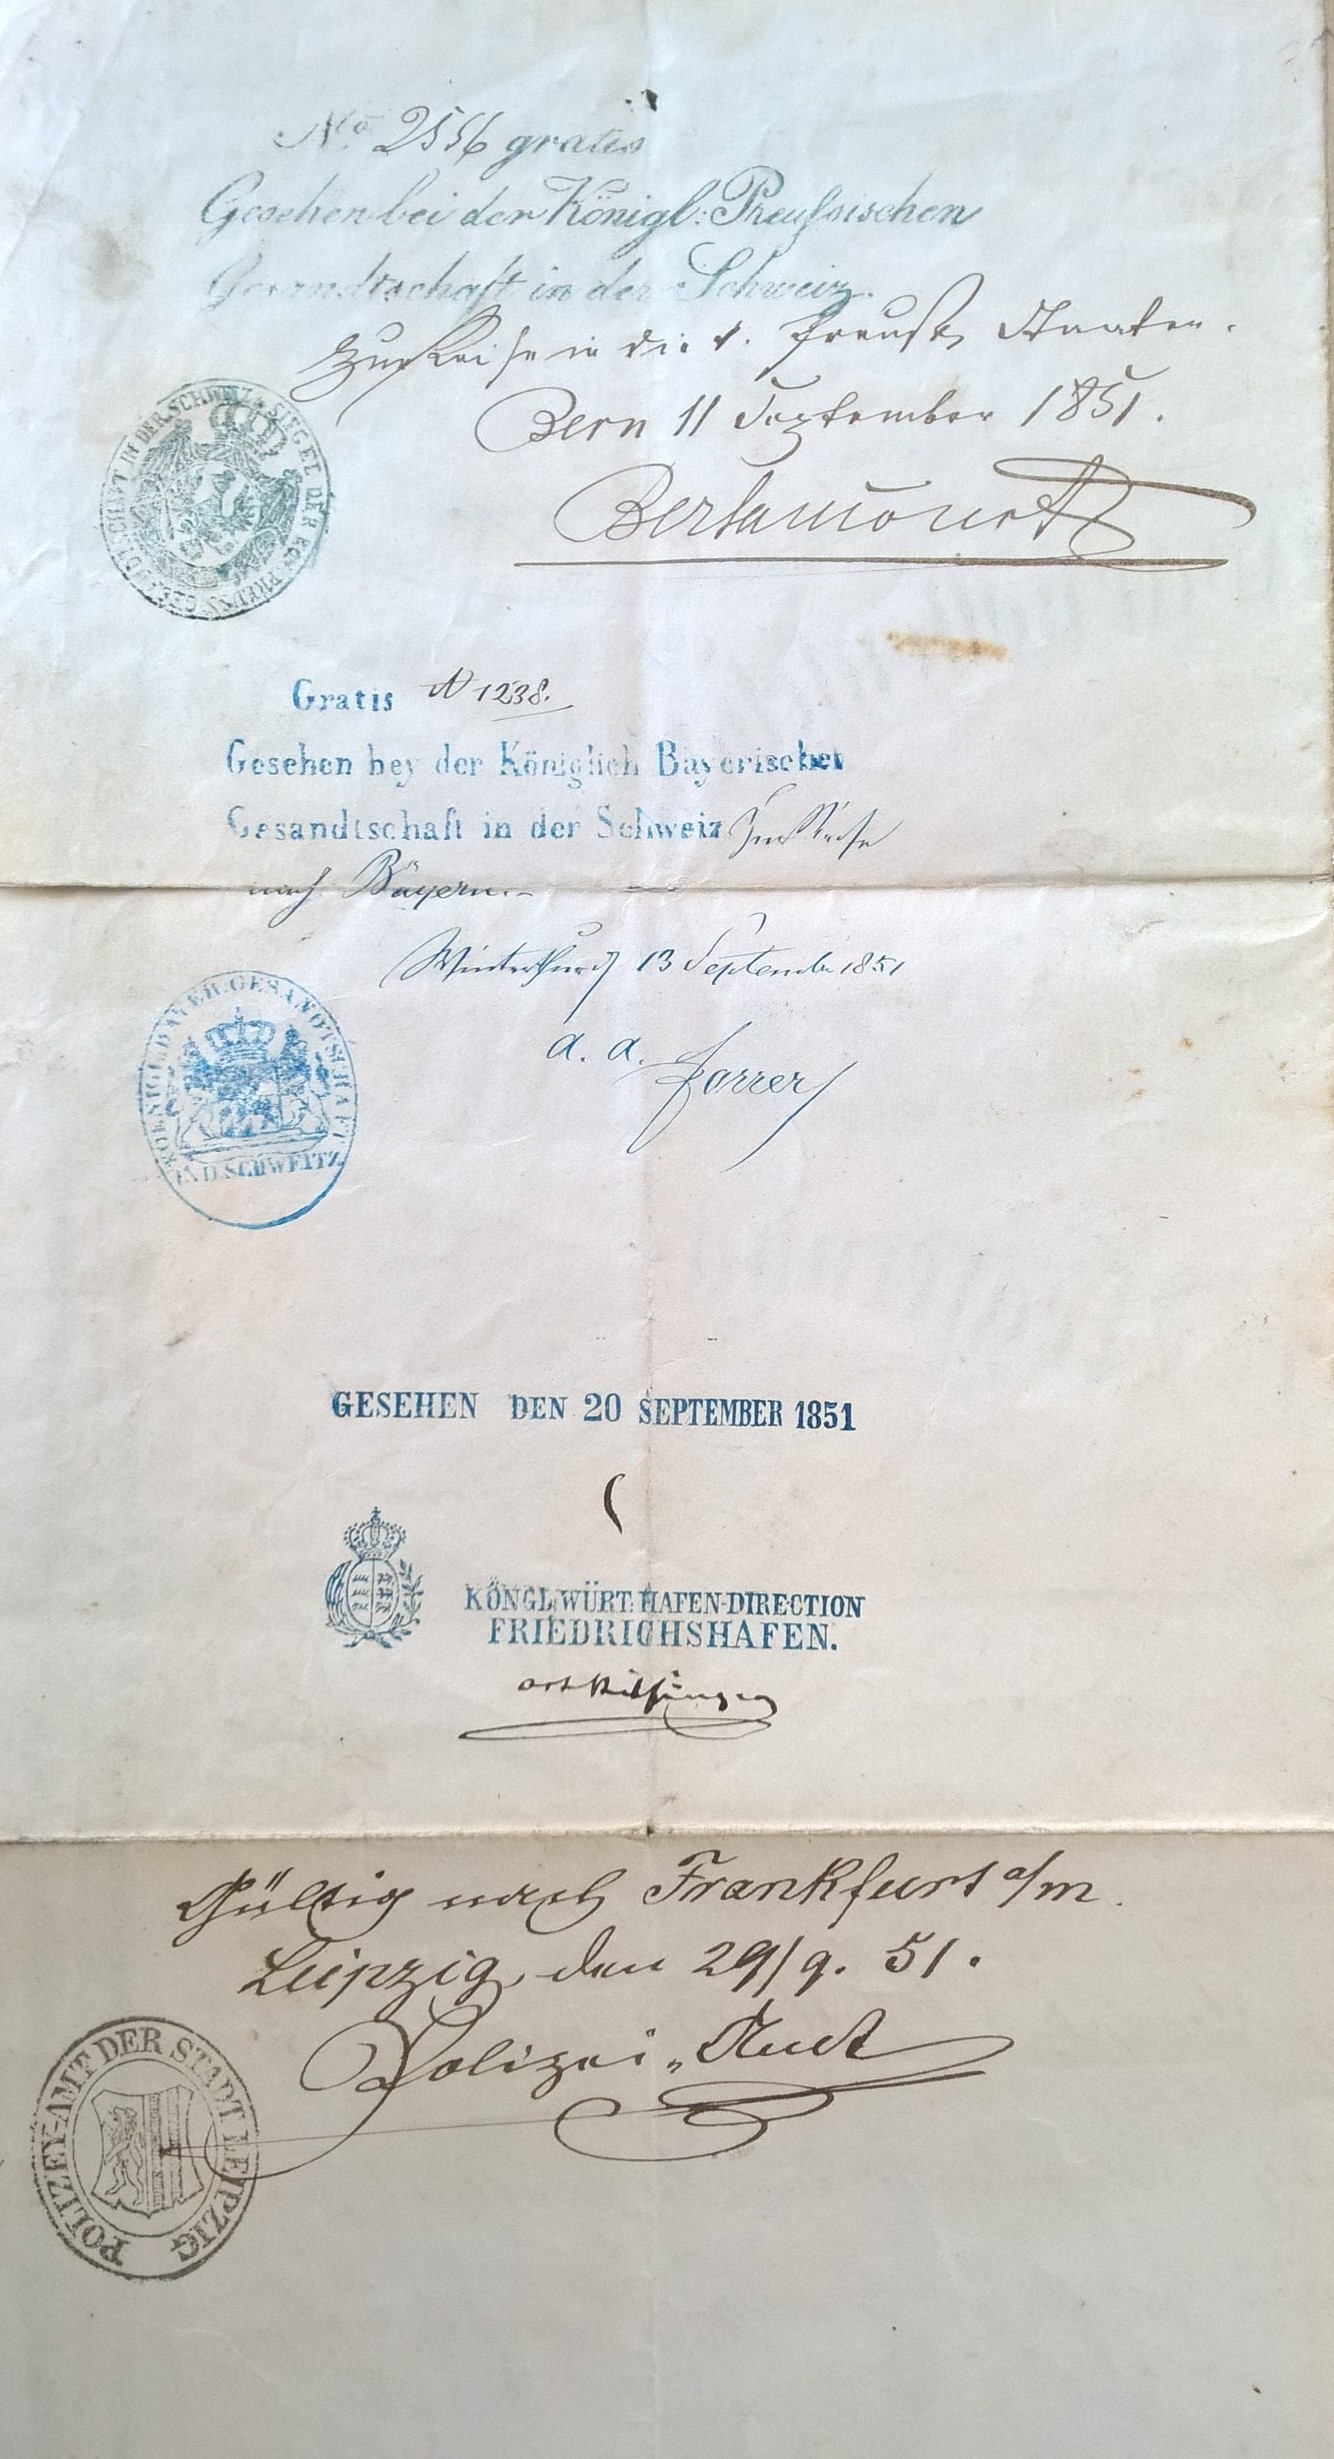 No. 2556 gratis
Gesehen bei der Königl: Preußischen
Gesandtschaft in der Schweiz.
Zur Reise in die k. Preuß. Staaten.
Bern 11 September 1851.
SIEGEL DER KÖN. PREUSS. GESANDTSCHAFT IN DER SCHWEIZ
Gratis N 1238.
Gesehen bey der Königlich Bayerischen
Gesandtschaft in der Schweiz Zur Reise
nach Bayern.
Winterthur 13 September 1851
a. a. Forrer
KOENIGL. BAYER. GESANDTSCHAFT
IN D. SCHWEITZ
GESEHEN DEN 20 SEPTEMBER 1851
KÖNGL. WÜRT. HAFEN-DIRECTION
FRIEDRICHSHAFEN.
Gültig nach Frankfurt a/m.
Leipzig, den 29/9. 51.
Polizei-Amt
POLIZEY-AMT DER STADT LEIPZIG